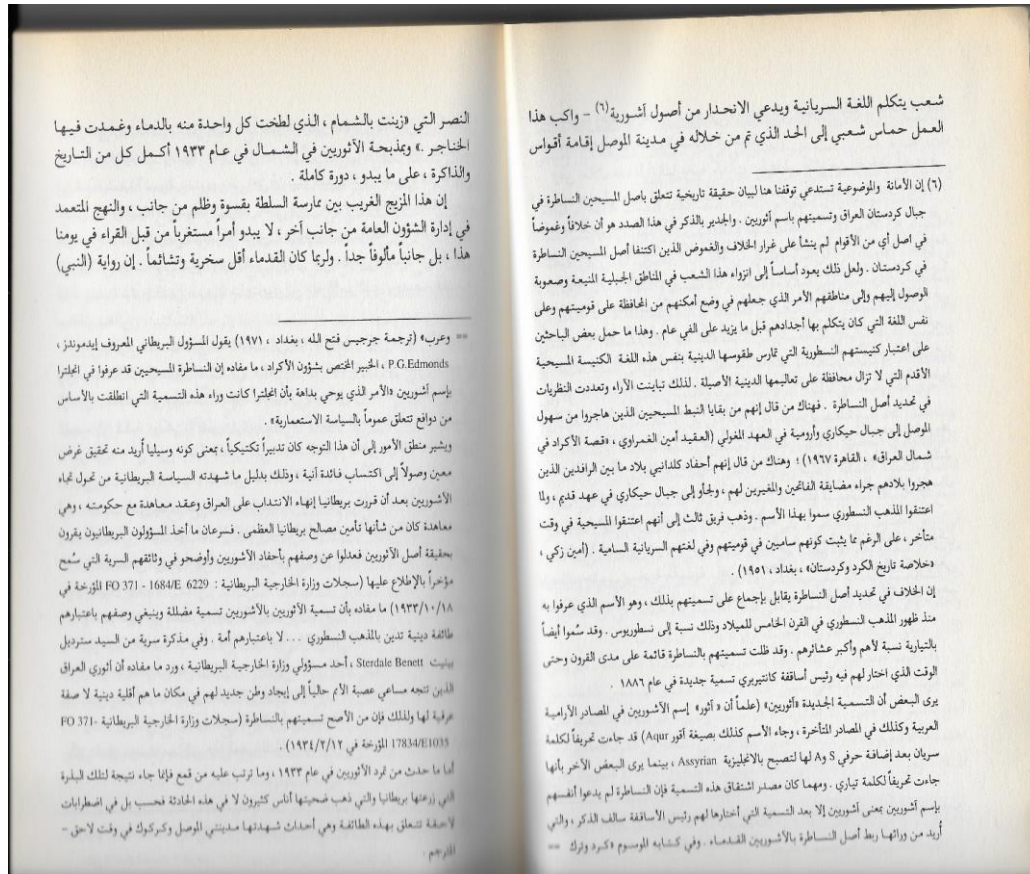 شعب يتكلم اللغة السريانية ويدعي الانحدار من أصول آشورية(٦) - واكب هذا
العمل حماس شعبي إلى الحد الذي تم من خلاله في مدينة الموصل إقامة أقواس
(٦) إن الأمانة والموضوعية تستدعي توقفنا هنا لبيان حقيقة تاريخية تتعلق باصل المسيحيين النساطرة في
جبال كردستان العراق وتسميتهم باسم آثوريين . والجدير بالذكر في هذا الصدد هو أن خلافاً وغموضاً
في اصل أي من الأقوام لم ينشأ على غرار الخلاف والغموض الذين اكتنفا أصل المسيحيين النساطرة
في كردستان . ولعل ذلك يعود أساساً إلى انزواء هذا الشعب في المناطق الجبلية المنيعة وصعوبة
الوصول إليهم وإلى مناطقهم الأمر الذي جعلهم في وضع أمكنهم من المحافظة على قوميتهم وعلى
نفس اللغة التي كان يتكلم بها أجدادهم قبل ما يزيد على الفي عام . وهذا ما حمل بعض الباحثين
على اعتبار كنيستهم النسطورية التي تمارس طقوسها الدينية بنفس هذه اللغة الكنيسة المسيحية
الأقدم التي لا تزال محافظة على تعاليمها الدينية الأصيلة . لذلك تباينت الآراء وتعددت النظريات
في تحديد أصل النساطرة . فهناك من قال إنهم من بقايا النبط المسيحيين الذين هاجروا من سهول
الموصل إلى جبال حيكاري وأرومية في العهد المغولي (العقيد أمين الغمراوي ، «قصة الأكراد في
شمال العراق» ، القاهرة ١٩٦٧) ؛ وهناك من قال إنهم أحفاد كلدانيي بلاد ما بين الرافدين الذين
هجروا بلادهم جراء مضايقة الفاتحين والمغيرين لهم ، ولجأو إلى جبال حيكاري في عهد قديم ، ولما
اعتنقوا المذهب النسطوري سموا بهذا الأسم . وذهب فريق ثالث إلى أنهم اعتنقوا المسيحية في وقت
متأخر ، على الرغم مما يثبت كونهم ساميين في قوميتهم وفي لغتهم السريانية السامية . (أمين زكي ،
«خلاصة تاريخ الكرد وكردستان» ، بغداد ، ١٩٥١) .
إن الخلاف في تحديد أصل النساطرة يقابل بإجماع على تسميتهم بذلك ، وهو الأسم الذي عرفوا به
منذ ظهور المذهب النسطوري في القرن الخامس للميلاد وذلك نسبة إلى نسطوريوس . وقد سُموا أيضاً
بالتيارية نسبة لأهم وأكبر عشائرهم . وقد ظلت تسميتهم بالنساطرة قائمة على مدى القرون وحتى
الوقت الذي اختار لهم فيه رئيس أساقفة كانتيربري تسمية جديدة في عام ١٨٨٦ .
يرى البعض أن التسمية الجديدة «آثوريين» (علماً أن « آثور» إسم الآشوريين في المصادر الأرامية
العربية وكذلك في المصادر المتأخرة ، وجاء الأسم كذلك بصيغة آقور Aqur) قد جاءت تحريفاً لكلمة
سريان بعد إضافة حرفي S و A لها لتصبح بالانجليزية Assyrian ، بينما يرى البعض الآخر بأنها
جاءت تحريفاً لكلمة تياري . ومهما كان مصدر اشتقاق هذه التسمية فإن النساطرة لم يدعوا أنفسهم
بإسم آشوريين بمعنى آشوريين إلا بعد التسمية التي أختارها لهم رئيس الأساقفة سالف الذكر ، والتي
أريد من ورائها ربط أصل النساطرة بالآشوريين القدماء . وفي كتابه الموسوم «كرد وترك ==
النصر التي «زينت بالشمام ، الذي لطخت كل واحدة منه بالدماء وغمدت فيها
الخناجر .» وبمذبحة الآثوريين في الشمال في عام ١٩٣٣ أكمل كل من التاريخ
والذاكرة ، على ما يبدو ، دورة كاملة .
إن هذا المزيج الغريب بين ممارسة السلطة بقسوة وظلم من جانب ، والنهج المتعمد
في إدارة الشؤون العامة من جانب آخر ، لا يبدو أمراً مستغرباً من قبل القراء في يومنا
هذا ، بل جانباً مألوفاً جداً . ولربما كان القدماء أقل سخرية وتشائماً . إن رواية (النبي)
== وعرب» (ترجمة جرجيس فتح الله ، بغداد ، ١٩٧١) يقول المسؤول البريطاني المعروف إيدموندز ،
P.G.Edmonds ، الخبير المختص بشؤون الأكراد ، ما مفاده إن النساطرة المسيحيين قد عرفوا في انجلترا
بإسم آشوريين «الأمر الذي يوحي بداهة بأن انجلترا كانت وراء هذه التسمية التي انطلقت بالأساس
من دوافع تتعلق عموماً بالسياسة الاستعمارية» .
ويشير منطق الأمور إلى أن هذا التوجه كان تدبيراً تكتيكياً ، بمعنى كونه وسيليا أريد منه تحقيق غرض
معين وصولاً إلى اكتساب فائدة آنية ، وذلك بدليل ما شهدته السياسة البريطانية من تحول تجاه
الآشوريين بعد أن قررت بريطانيا إنهاء الانتداب على العراق وعقد معاهدة مع حكومته ، وهي
معاهدة كان من شأنها تأمين مصالح بريطانيا العظمى . فسرعان ما أخذ المسؤولون البريطانيون يقرون
بحقيقة أصل الآثوريين فعدلوا عن وصفهم بأحفاد الآشوريين وأوضحو في وثائقهم السرية التي سُمح
مؤخراً بالإطلاع عليها (سجلات وزارة الخارجية البريطانية : FO 371 - 1684/E 6229 المؤرخة في
١٩٣٣/١٠/١٨) ما مفاده بأن تسمية الآثوريين بالآشوريين تسمية مضللة وينبغي وصفهم باعتبارهم
طائفة دينية تدين بالمذهب النسطوري ... لا باعتبارهم أمة . وفي مذكرة سرية من السيد ستردیل
بينيت Sterdale Benett ، أحد مسؤولي وزارة الخارجية البريطانية ، ورد ما مفاده أن آثوري العراق
الذين تتجه مساعي عصبة الأمم حالياً إلى إيجاد وطن جديد لهم في مكان ما هم أقلية دينية لا صفة
عرقية لها ولذلك فإن من الأصح تسميتهم بالنساطرة (سجلات وزارة الخارجية البريطانية FO 371-
17834/E1035 المؤرخة في ١٩٣٤/٢/١٢) .
أما ما حدث من تمرد الآثوريين في عام ١٩٣٣ ، وما ترتب عليه من قمع فإنما جاء نتيجة لتلك البذرة
التي زرعتها بريطانيا والتي ذهب ضحيتها أناس كثيرون لا في هذه الحادثة فحسب بل في اضطرابات
لاحقة تتعلق بهذه الطائفة وهي أحداث شهدتها مدينتي الموصل وكركوك في وقت لاحق -
المترجم .